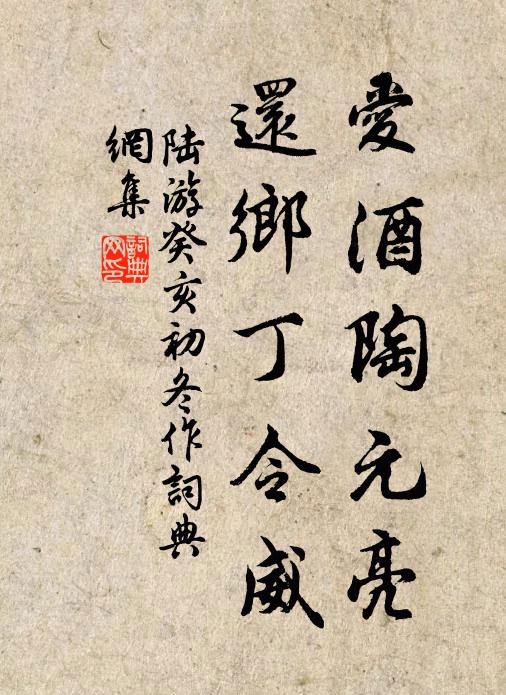 愛酒陶元亮
還鄉丁令威
陸游癸亥初冬作詞典
網集
詞典
网印